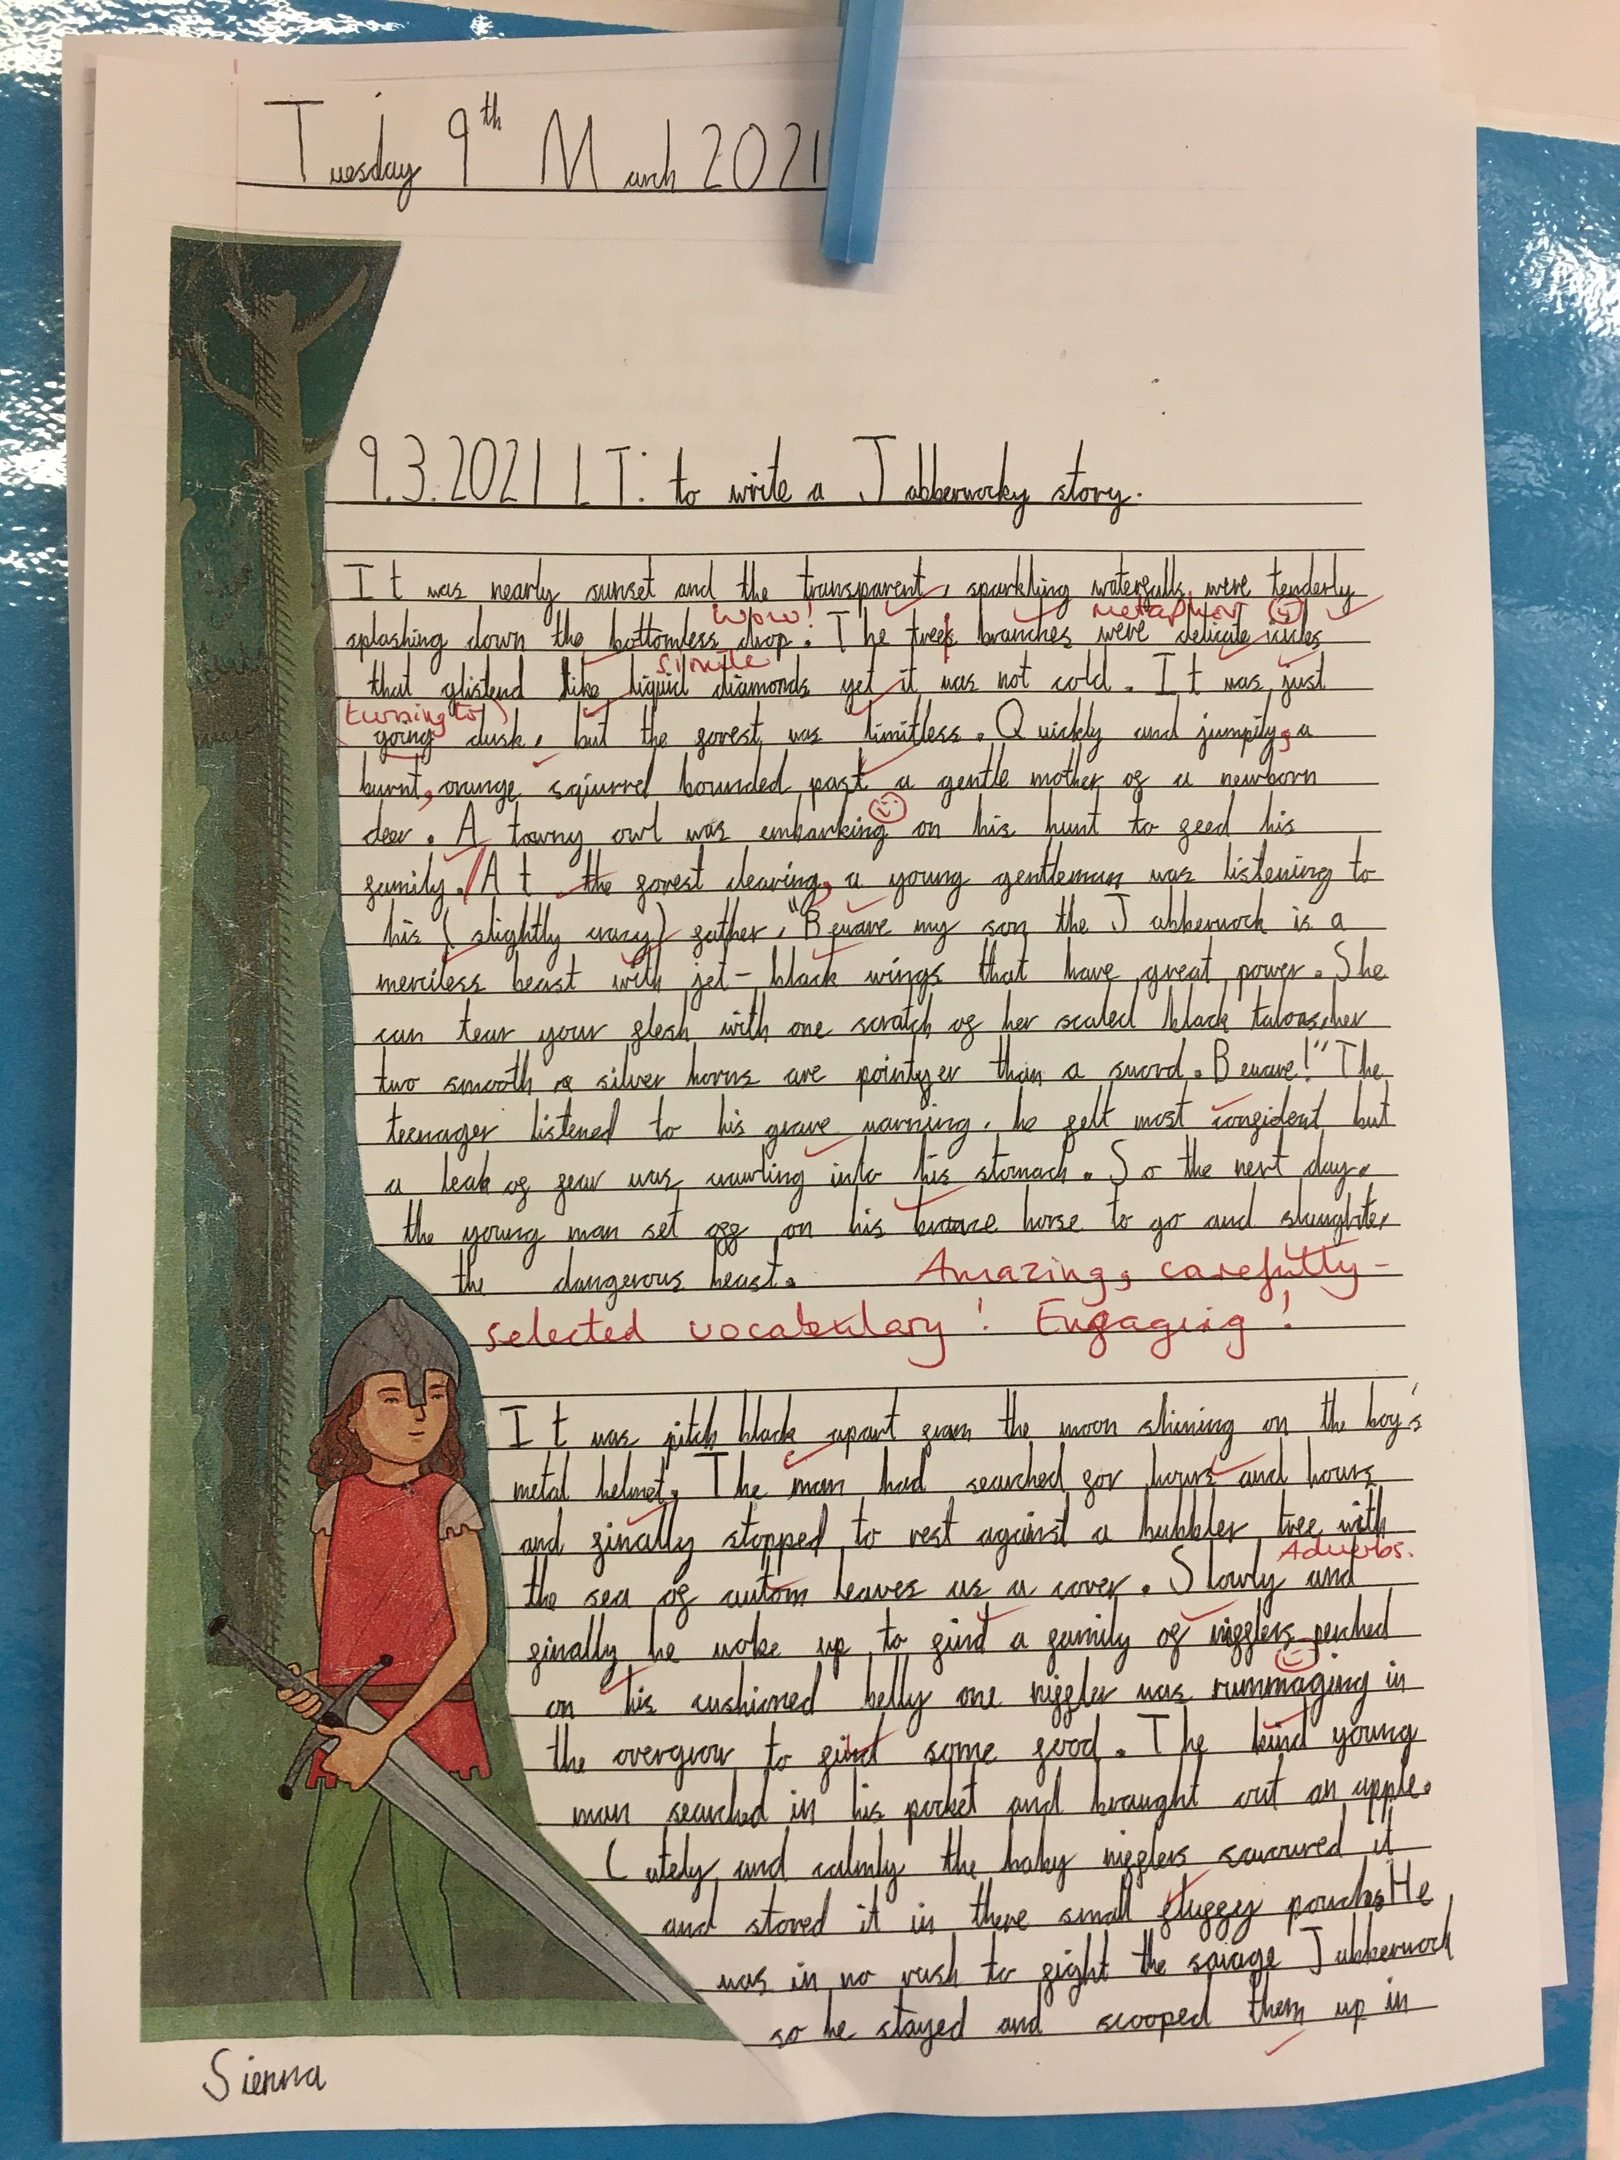 Tuesday 9th March 2021
9.3.2021 LT: to write a Jabberwocky story.
It was nearly sunset and the transparent, sparkling waterfalls were tenderly
Wow! metaphor
splashing down the bottomless drop. The trees branches were delicate icicles
simile
that glistend like liquid diamonds yet it was not cold. It was just
(turning to)
going dusk, but the forest was limitless. Quickly and jumpily, a
burnt, orange squirrel bounded past a gentle mother of a newborn
deer. A tawny owl was embarking on his hunt to feed his
family. // At the forest clearing, a young gentleman was listening to
his (slightly crazy) father, "Beware my son the Jabberwock is a
merciless beast with jet-black wings that have great power. She
can tear your flesh with one scratch of her scaled black talons, her
two smooth silver horns are pointyer than a sword. Beware!" The
teenager listened to his grave warning, he felt most confident but
a leak of fear was crawling into his stomach. So the next day,
the young man set off on his horse to go and slaughter
the dangerous beast.
Amazing, carefully-
selected vocabulary! Engaging!
It was pitch black apart from the moon shining on the boy's
metal helmet. The man had searched for hours and hours
and finally stopped to rest against a hubbler tree with
Adverbs.
the sea of autom leaves as a cover. Slowly and
finally he woke up to find a family of nigglers perched
on his cushioned belly one niggler was rummaging in
the overgrow to find some food. The kind young
man searched in his pocket and braught out an apple.
Cutely and calmly the baby nigglers savoured it
and stored it in there small fluffy pouches He
was in no rush to fight the savage Jabberwock
so he stayed and scooped them up in
Sienna